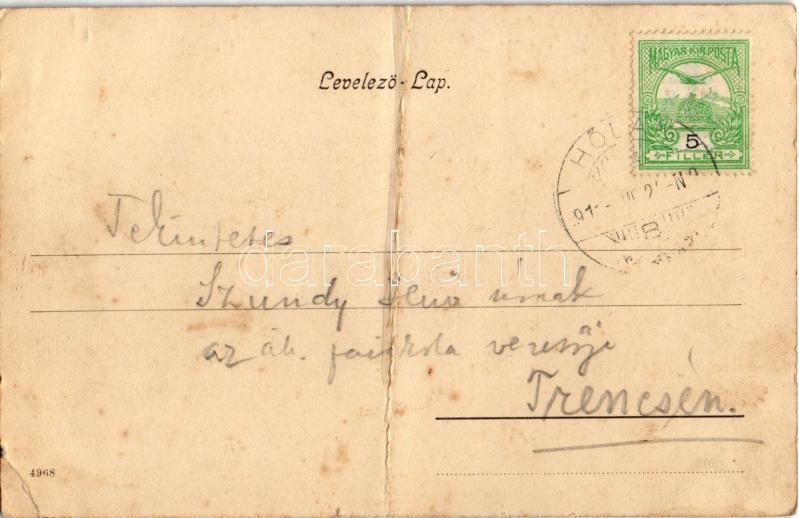 Levelező-Lap.
MAGYAR KIR. POSTA
5
FILLÉR
HŐLAK
B
Tekintetes
Szundy Jenő úrnak
az áll. faiskola vezetője
Trencsén.
darabanth
4968